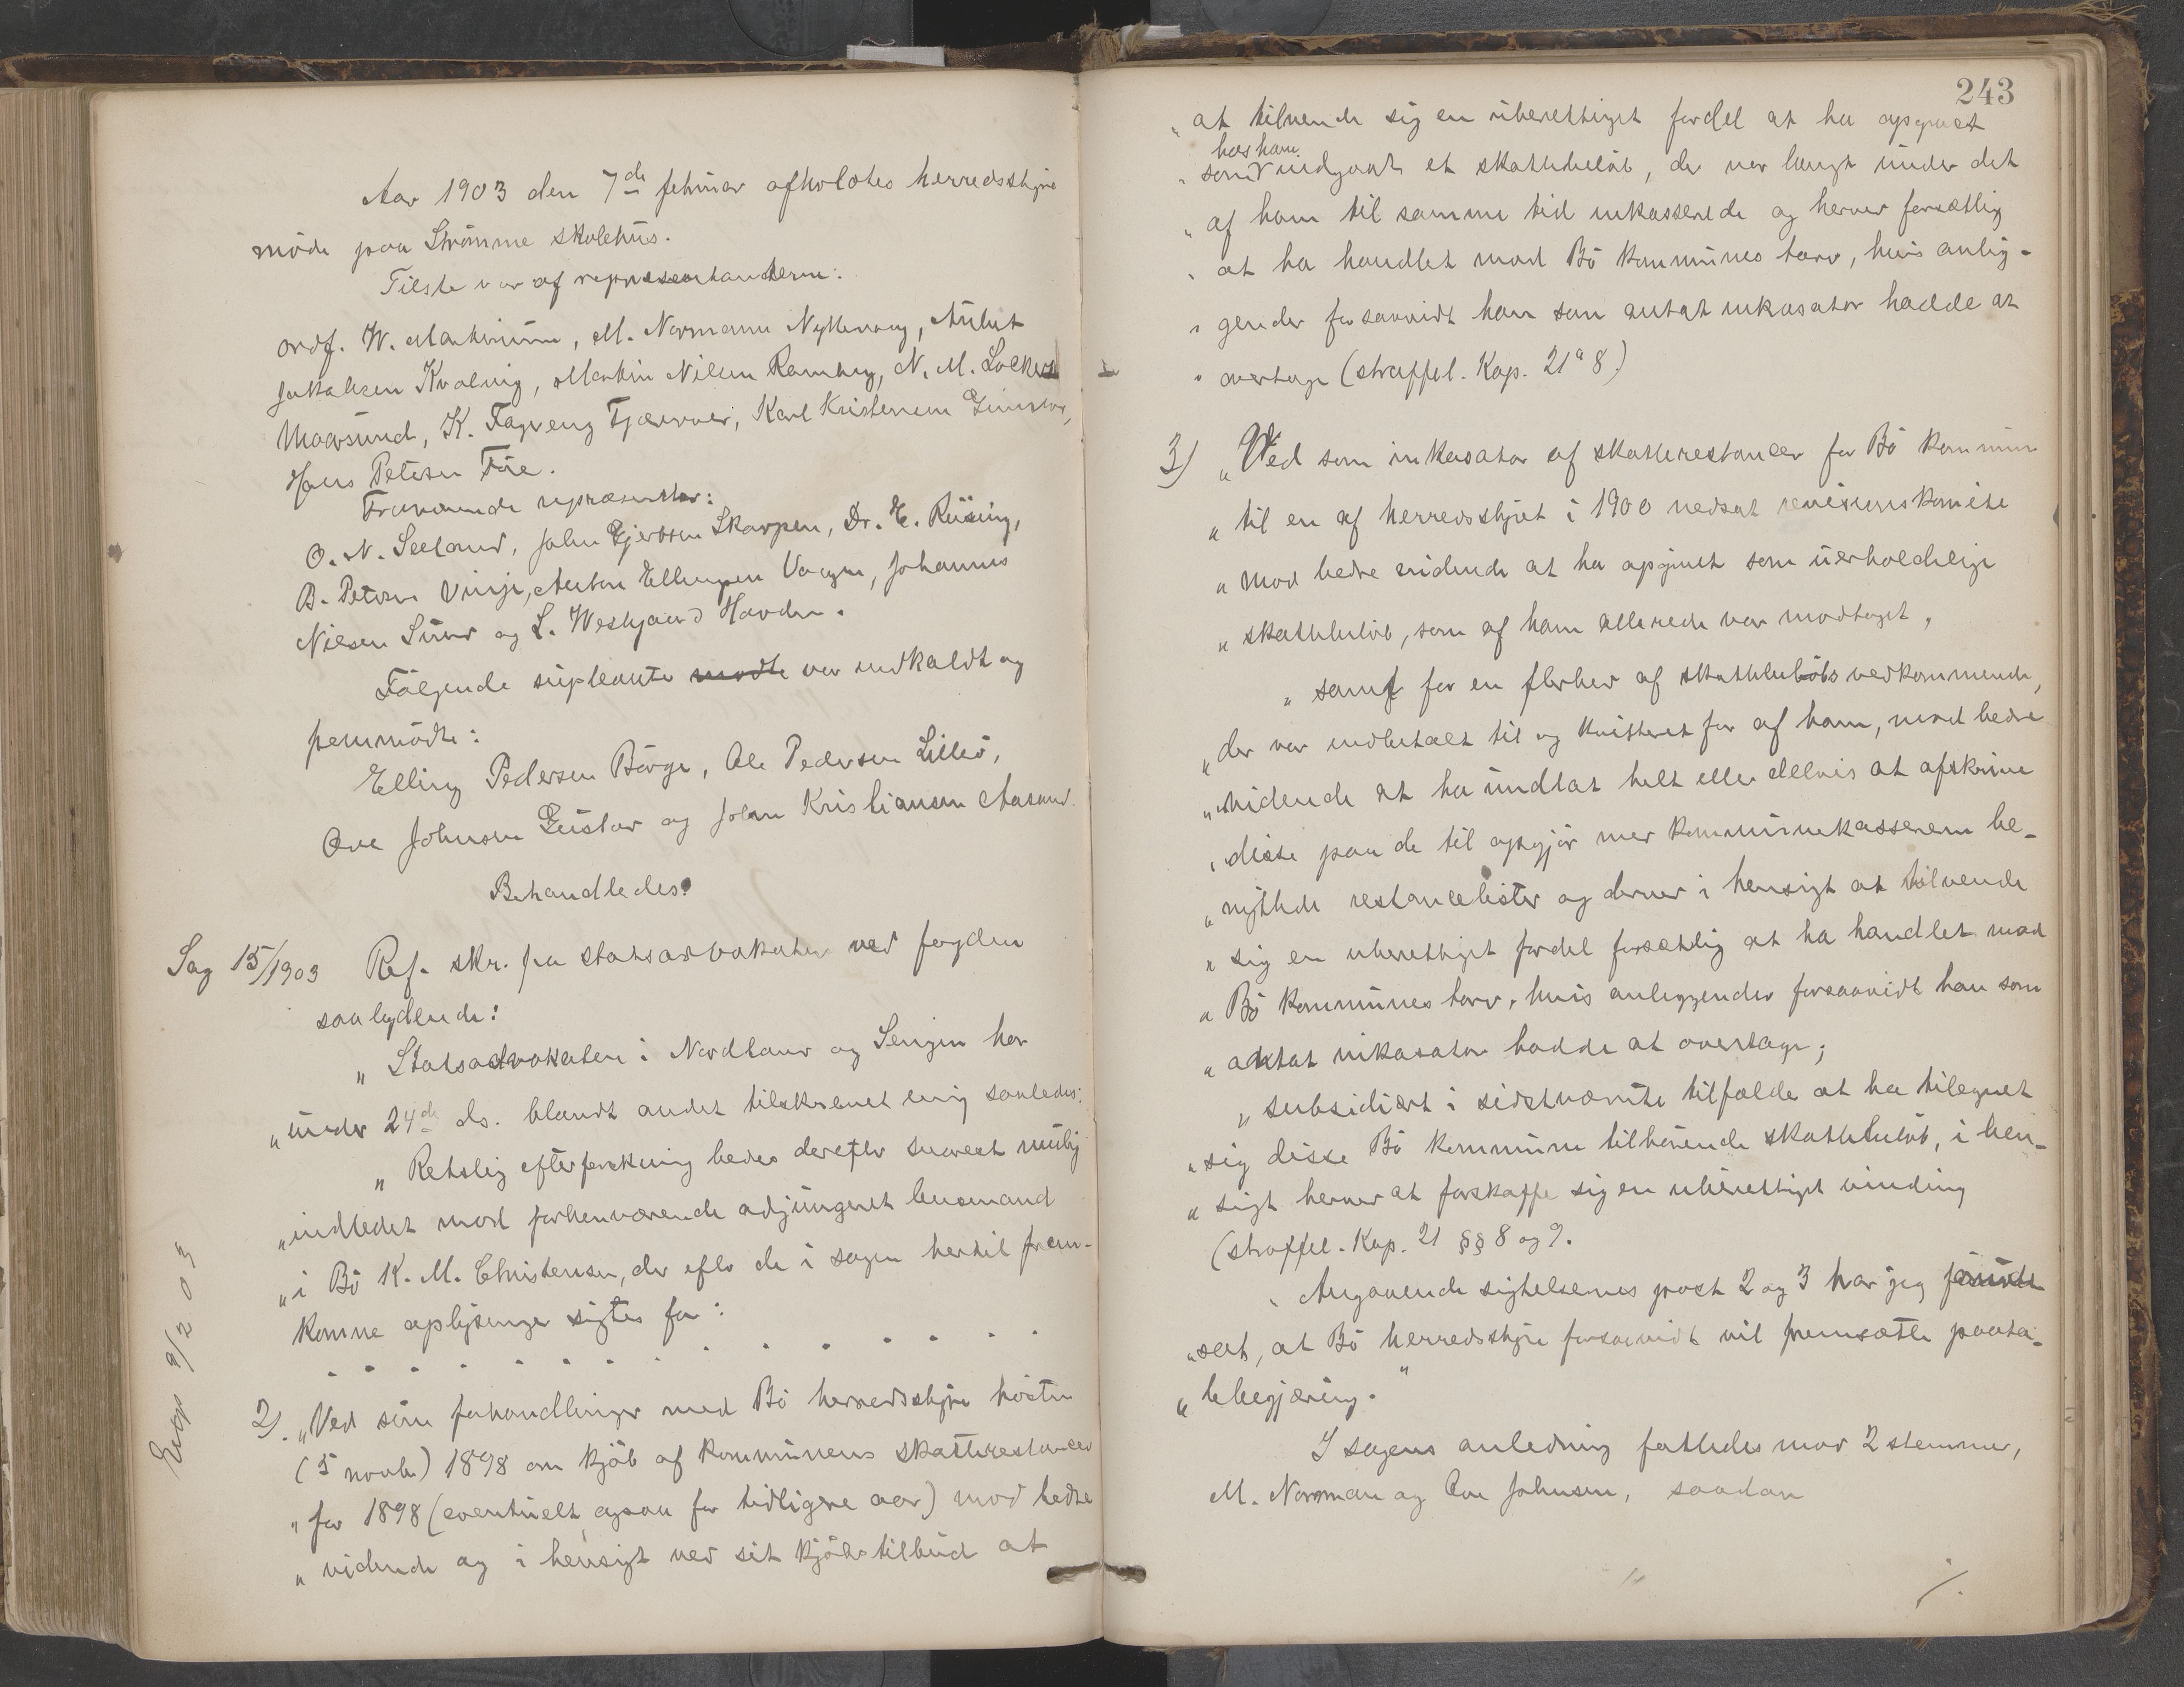 Aar 1903 den 7de februar afholdtes herredsstyre
møde paa Strømme skolehus.
Tilstede var af repræsentanterne:
ordf. W. Martinussen, M. Normann Nykvaag, Anbert
Jakobsen Kvalvig, Martin Nilsen Ramberg, N. M. Lockert
Maarsund, K. Fagereng Fjærvoer, Karl Kristensen Guvaag,
Hans Petersen Føre.
Fraværende repræsenter:
O. N. Seeland, John Gjertsen Skarpen, Dr. E. Riising,
B. Petersen Vinje, Anton Ellingsen Vaagen, Johannes
Nilsen Sund og L. Westgaard Hovden.
Følgende supleanter mødte var indkaldt og
fremmødte:
Elling Pedersen Børge, Ole Pedersen Lilleø,
Ove Johnsen Gustav og Johan Kristiansen Aasand.
Behandledes:
Sag 15/1903 Ref. skr. fra statsadvokaten ved fogden
saalydende:
„Statsadvokaten i Nordland og Senjen har
„under 24de ds. blandt andet tilskrevet mig saaledes:
„Retslig efterforskning bedes derefter snarest mulig
„indledet mod forhenværende adjungeret lensmand
„i Bø K. M. Christensen, der efter de i sagen hertil frem-
komne oplysninger sigtes for:
2). „Ved sine forhandlinger med Bø herredsstyre høsten
(5 novbr) 1898 om kjøb af kommunens skatterestancer
„for 1898 (eventuelt ogsaa for tidligere aar) mod bedre
„vidende og i hensigt ved sit kjøbstilbud at
Exp 9/2 03
243
„at tilvende sig en uberettiget fordel at ha opgivet
hos ham
„som indgaaet et skattebeløb, der var langt under det
„af ham til samme tid inkasserede og herved forsætlig
„at ha handlet mod Bø kommunes tarv, hvis anlig-
„gender forsaavidt han som antat inkasator hadde at
„overtage (straffel. Kap. 21 § 8.)
3) „Ved som inkasator af skatterestancer for Bø kommune
„til en af herredsstyret i 1900 nedsat revisionskomite
„mod bedre vidende at ha opgivet som uerholdelige
„skattebeløb, som af ham allerede var modtaget,
„samt for en flerhed af skattebeløbs vedkommende,
„der var indbetalt til og kvitteret for af ham, mod bedre
„vidende at ha undlat helt eller delvis at afskrive
„disse paa de til opgjør med kommunekassereren be-
„nyttede restancelister og derved i hensigt at tilvende
„sig en uberettiget fordel forsætlig at ha handlet mod
„Bø kommunes tarv, hvis anliggender forsaavidt han som
„antat inkasator hadde at overtage;
„subsidiært i sidstnævnte tilfælde at ha tilegnet
„sig disse Bø kommune tilhørende skattebeløb, i hen-
„sigt herved at forskaffe sig en uberettiget vinding
(straffel. Kap. 21 §§ 8 og 9.
„Angaaende sigtelsernes post 2 og 3 har jeg forud-
„sat, at Bø herredsstyre forsaavidt vil fremsætte paata-
„lebegjæring."
I sagens anledning fattedes mod 2 stemmer,
M. Norman og Ove Johnsen, saadan